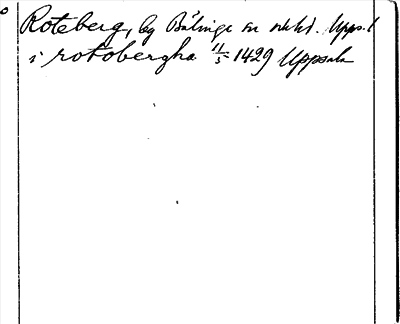 Roteberg, by Bälinge sn o h d. Upps. l
i rotobergha 11/5 1429 Uppsala